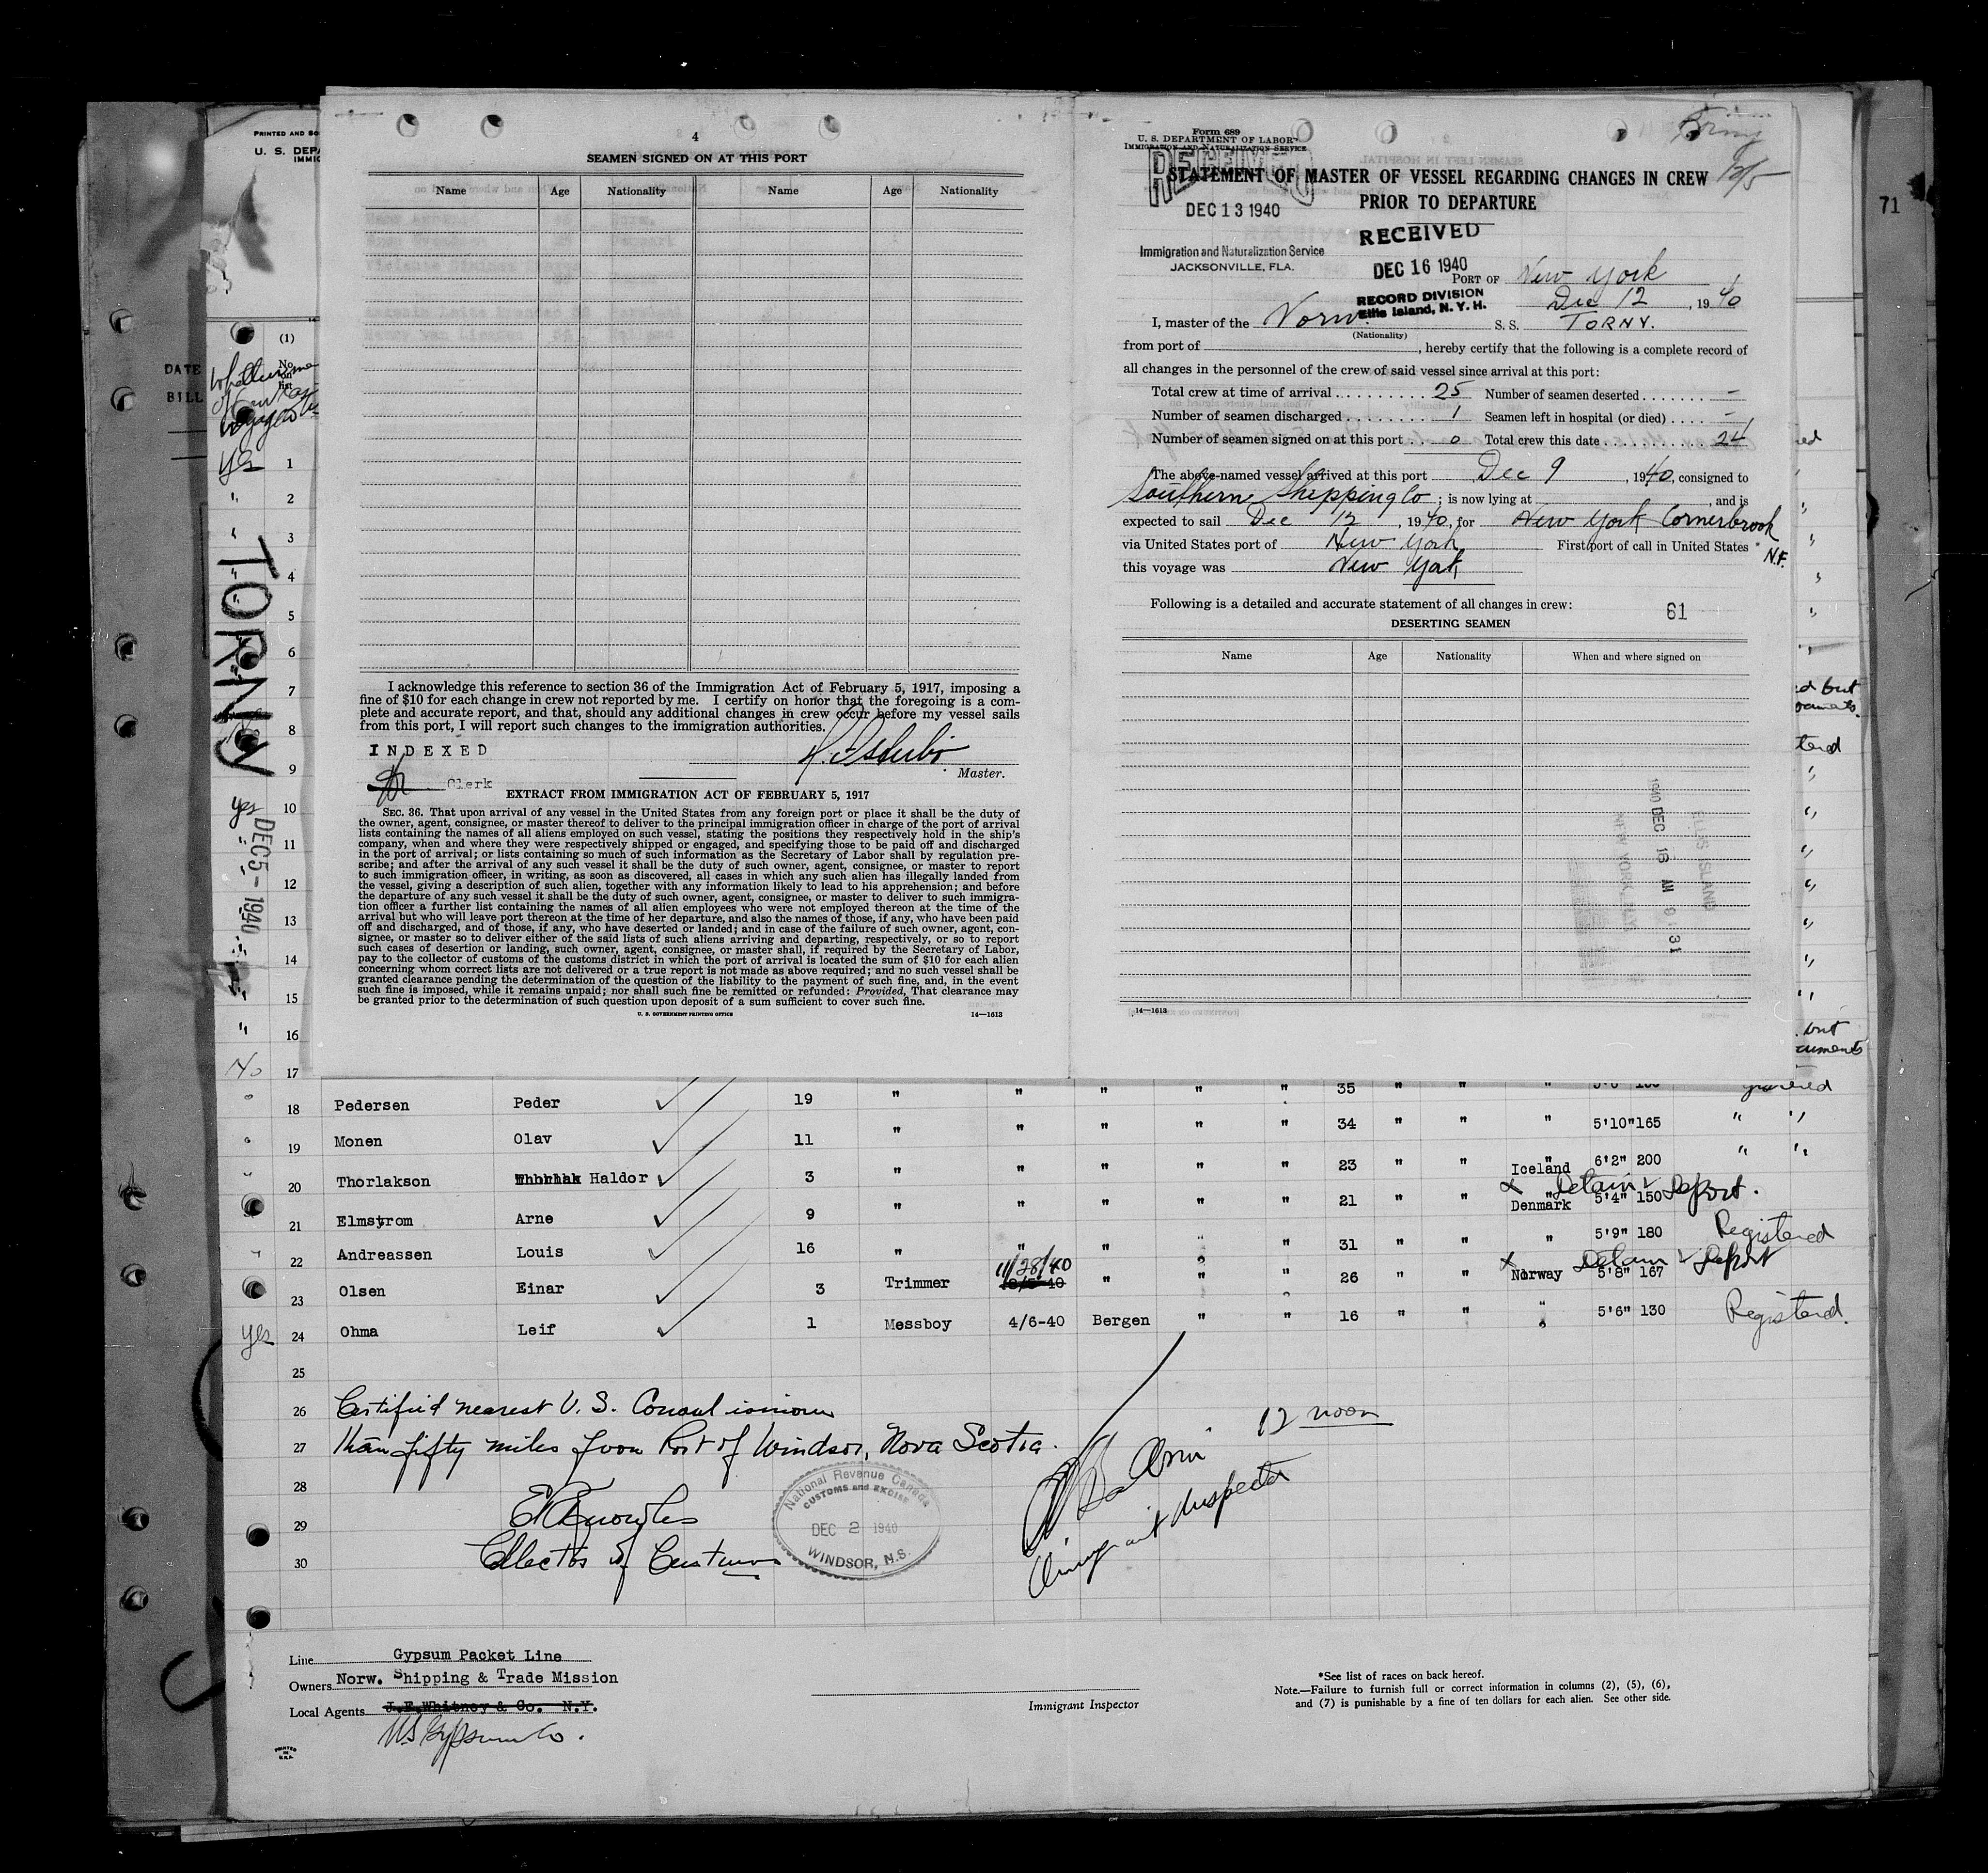 PRINTED AND
U. S. DEP
IMMIG
DATE
BILL
(1)
No.
on
list
yes 1
" 2
" 3
4
5
6
7
8
9
yes 10
11
12
13
14
15
" 16
No 17
TORNY
DEC 5 - 1940
71
4
SEAMEN SIGNED ON AT THIS PORT
Name Age Nationality Name Age Nationality
I acknowledge this reference to section 36 of the Immigration Act of February 5, 1917, imposing a
fine of $10 for each change in crew not reported by me. I certify on honor that the foregoing is a com-
plete and accurate report, and that, should any additional changes in crew occur before my vessel sails
from this port, I will report such changes to the immigration authorities.
INDEXED
Clerk
Master.
EXTRACT FROM IMMIGRATION ACT OF FEBRUARY 5, 1917
SEC. 36. That upon arrival of any vessel in the United States from any foreign port or place it shall be the duty of
the owner, agent, consignee, or master thereof to deliver to the principal immigration officer in charge of the port of arrival
lists containing the names of all aliens employed on such vessel, stating the positions they respectively hold in the ship's
company, when and where they were respectively shipped or engaged, and specifying those to be paid off and discharged
in the port of arrival; or lists containing so much of such information as the Secretary of Labor shall by regulation pre-
scribe; and after the arrival of any such vessel it shall be the duty of such owner, agent, consignee, or master to report
to such immigration officer, in writing, as soon as discovered, all cases in which any such alien has illegally landed from
the vessel, giving a description of such alien, together with any information likely to lead to his apprehension; and before
the departure of any such vessel it shall be the duty of such owner, agent, consignee, or master to deliver to such immigra-
tion officer a further list containing the names of all alien employees who were not employed thereon at the time of the
arrival but who will leave port thereon at the time of her departure, and also the names of those, if any, who have been paid
off and discharged, and of those, if any, who have deserted or landed; and in case of the failure of such owner, agent, con-
signee, or master so to deliver either of the said lists of such aliens arriving and departing, respectively, or so to report
such cases of desertion or landing, such owner, agent, consignee, or master shall, if required by the Secretary of Labor,
pay to the collector of customs of the customs district in which the port of arrival is located the sum of $10 for each alien
concerning whom correct lists are not delivered or a true report is not made as above required; and no such vessel shall be
granted clearance pending the determination of the question of the liability to the payment of such fine, and, in the event
such fine is imposed, while it remains unpaid; nor shall such fine be remitted or refunded: Provided, That clearance may
be granted prior to the determination of such question upon deposit of a sum sufficient to cover such fine.
U. S. GOVERNMENT PRINTING OFFICE 14—1613
Form 689
U. S. DEPARTMENT OF LABOR
IMMIGRATION AND NATURALIZATION SERVICE
RECEIVED
STATEMENT OF MASTER OF VESSEL REGARDING CHANGES IN CREW
PRIOR TO DEPARTURE
12/5
DEC 13 1940
Immigration and Naturalization Service
JACKSONVILLE, FLA.
RECEIVED
DEC 16 1940
RECORD DIVISION
Ellis Island, N. Y. H.
PORT OF New York
Dec 12, 1940
I, master of the Norw. S. S. TORNY.
(Nationality)
from port of , hereby certify that the following is a complete record of
all changes in the personnel of the crew of said vessel since arrival at this port:
Total crew at time of arrival 25 Number of seamen deserted –
Number of seamen discharged 1 Seamen left in hospital (or died) –
Number of seamen signed on at this port 0 Total crew this date 24
The above-named vessel arrived at this port Dec 9, 1940, consigned to
Southern Shipping Co; is now lying at , and is
expected to sail Dec 12, 1940, for New York Cornerbrook
N.F.
via United States port of New York First port of call in United States
this voyage was New York
Following is a detailed and accurate statement of all changes in crew: 61
DESERTING SEAMEN
Name Age Nationality When and where signed on
ELLIS ISLAND
1940 DEC 16 AM 9 31
14—1613
35 " " "
18 Pedersen Peder 19 " " " " " 34 " " " 5'10" 165 " "
19 Monen Olav 11 " " " " " 23 " " " 6'2" 200 " "
20 Thorlakson Haldor 3 " " " " " 21 " " Iceland 5'4" 150 x Detain & Deport.
21 Elmstrom Arne 9 " " " " " 31 " " Denmark 5'9" 180 Registered
22 Andreassen Louis 16 " " "
23 Olsen Einar 3 Trimmer 11/28/40 " " " 26 " " x Norway 5'8" 167 Detain & Deport
yes 24 Ohma Leif 1 Messboy 4/6-40 Bergen " " 16 " " " 5'6" 130 Registered.
25
26 Certified nearest U. S. Consul is more
27 than fifty miles from Port of Windsor, Nova Scotia.
28
29 E Knowles
30 Collector of Customs
National Revenue Canada
CUSTOMS and EXCISE
DEC 2 1940
WINDSOR, N.S.
12 noon
Immigrant Inspector
Line Gypsum Packet Line
Owners Norw. Shipping & Trade Mission
Local Agents J.E.Whitney & Co. N.Y.
US Gypsum Co.
Immigrant Inspector
*See list of races on back hereof.
Note.—Failure to furnish full or correct information in columns (2), (5), (6),
and (7) is punishable by a fine of ten dollars for each alien. See other side.
PRINTED
IN
U.S.A.